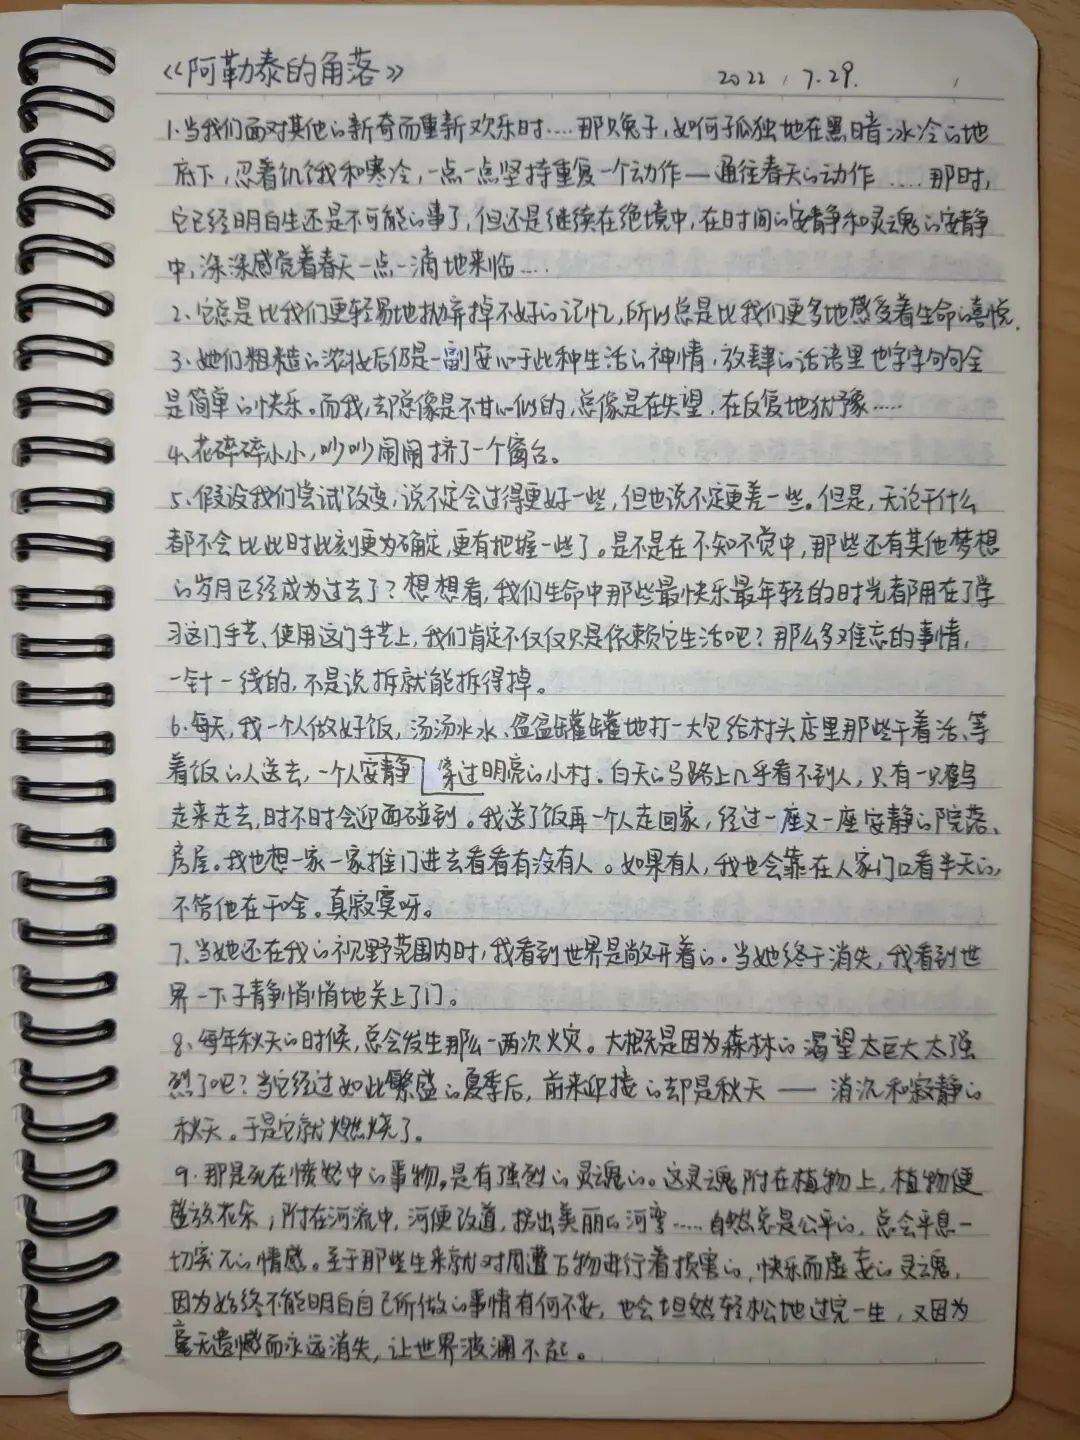 《阿勒泰的角落》 2022，7.29.
1.当我们面对其他的新奇而重新欢乐时……那只兔子，如何孤独地在黑暗冰冷的地
底下，忍着饥饿和寒冷，一点一点坚持重复一个动作——通往春天的动作……那时，
它已经明白生还是不可能的事了，但还是继续在绝境中，在时间的安静和灵魂的安静
中，深深感觉着春天一点一滴地来临……
2、它总是比我们更轻易地抛弃掉不好的记忆，所以总是比我们更多地感受着生命的喜悦。
3.她们粗糙的浓妆后仍是一副安心于此种生活的神情，放肆的话语里也字字句句全
是简单的快乐。而我，却总像是不甘心似的，总像是在失望，在反复地犹豫……
4、花碎碎小小，吵吵闹闹挤了一个窗台。
5.假设我们尝试改变，说不定会过得更好一些，但也说不定更差一些。但是，无论干什么
都不会比此时此刻更为确定，更有把握一些了。是不是在不知不觉中，那些还有其他梦想
的岁月已经成为过去了？想想看，我们生命中那些最快乐最年轻的时光都用在了学
习这门手艺、使用这门手艺上，我们肯定不仅仅只是依赖它生活吧？那么多难忘的事情，
一针一线的，不是说拆就能拆得掉。
6.每天，我一个人做好饭，汤汤水水、盆盆罐罐地打一大包给村头店里那些干着活、等
着饭的人送去，一个人安静穿过明亮的小村。白天的马路上几乎看不到人，只有一只鹤
走来走去，时不时会迎面碰到。我送了饭再一个人走回家，经过一座又一座安静的院落、
房屋。我也想一家一家推门进去看看有没有人。如果有人，我也会靠在人家门口看半天的，
不管他在干啥。真寂寞呀。
7、当她还在我的视野范围内时，我看到世界是敞开着的。当她终于消失，我看到世
界一下子静悄悄地关上了门。
8、每年秋天的时候，总会发生那么一两次火灾。大概是因为森林的渴望太巨大太强
烈了吧？当它经过如此繁盛的夏季后，前来迎接的却是秋天——消沉和寂静的
秋天。于是它就燃烧了。
9.那是死在愤怒中的事物，是有强烈的灵魂的。这灵魂附在植物上，植物便
盛放花朵；附在河流中，河便改道，拐出美丽的河弯……自然总是公平的，总会平息一
切突兀的情感。至于那些生来就对周遭万物进行着损害的，快乐而虚妄的灵魂，
因为始终不能明白自己所做的事情有何不妥，也会坦然轻松地过完一生，又因为
毫无遗憾而永远消失，让世界波澜不起。